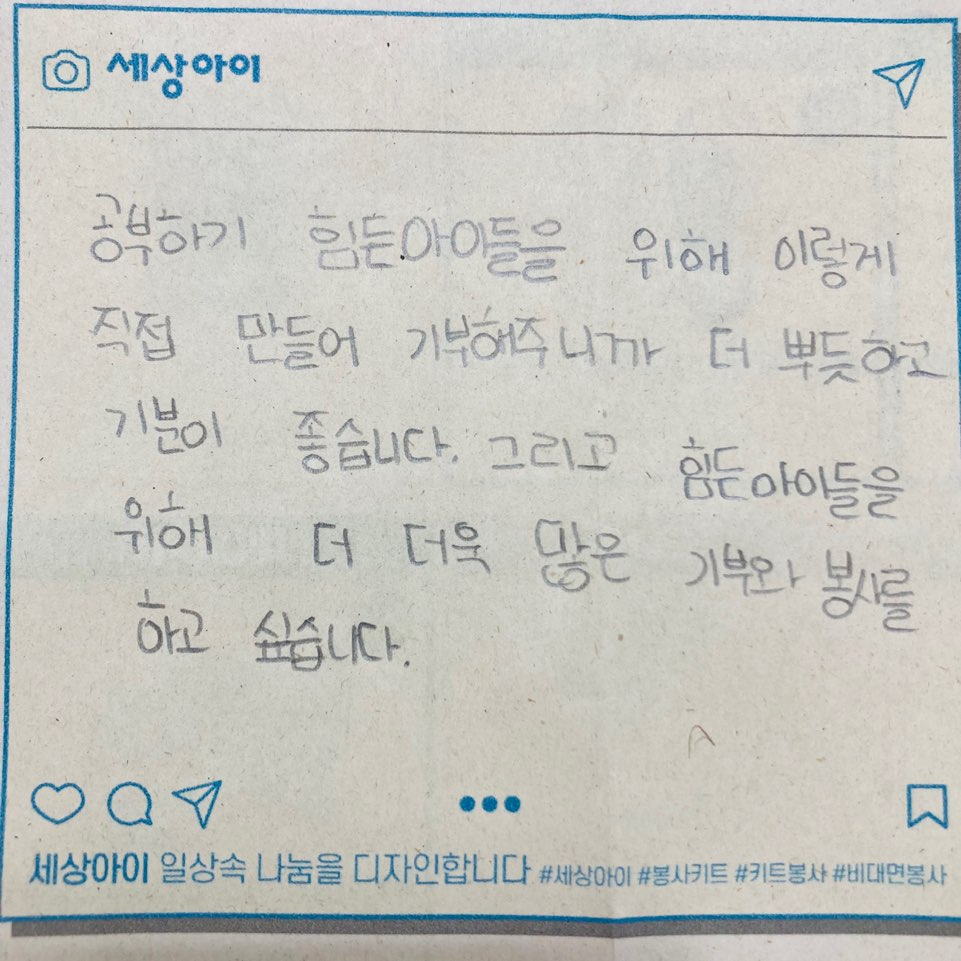 세상아이
공부하기 힘든아이들을 위해 이렇게
직접 만들어 기부해주니까 더 뿌듯하고
기분이 좋습니다. 그리고 힘든아이들을
위해 더 더욱 많은 기부와 봉사를
하고 싶습니다.
세상아이 일상속 나눔을 디자인합니다 #세상아이 #봉사키트 #키트봉사 #비대면봉사